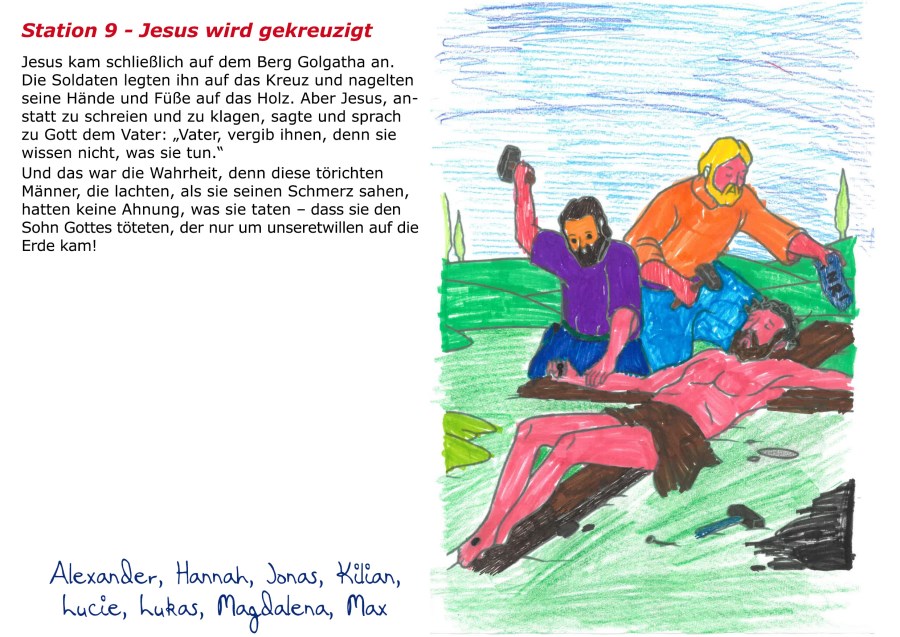 Station 9 - Jesus wird gekreuzigt
Jesus kam schließlich auf dem Berg Golgatha an.
Die Soldaten legten ihn auf das Kreuz und nagelten
seine Hände und Füße auf das Holz. Aber Jesus, an-
statt zu schreien und zu klagen, sagte und sprach
zu Gott dem Vater: „Vater, vergib ihnen, denn sie
wissen nicht, was sie tun.“
Und das war die Wahrheit, denn diese törichten
Männer, die lachten, als sie seinen Schmerz sahen,
hatten keine Ahnung, was sie taten – dass sie den
Sohn Gottes töteten, der nur um unseretwillen auf die
Erde kam!
Alexander, Hannah, Jonas, Kilian,
Lucie, Lukas, Magdalena, Max